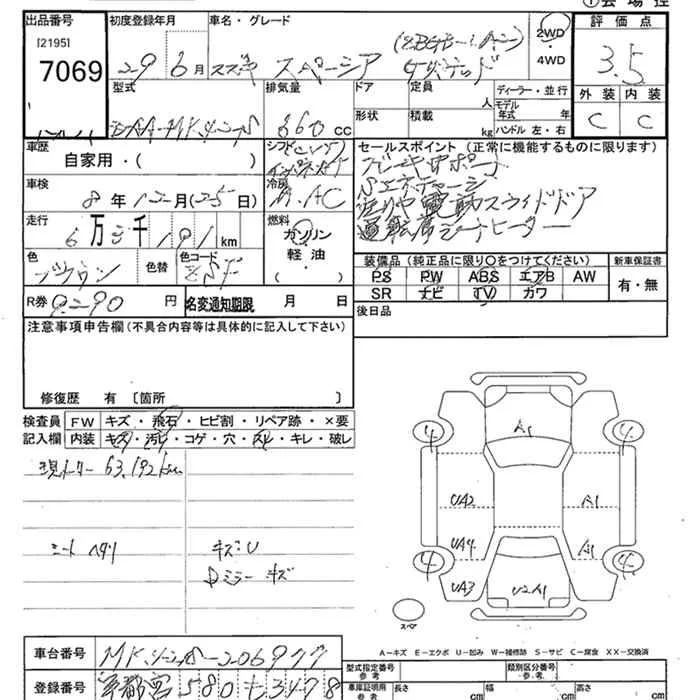 ①会場控
出品番号
[21951
7069
初度登録年月
29 6月
車名・グレード
スズキ スペーシア
2WD
4WD
評価点
3.5
外装 内装
C C
型式
DAA-MK42S
排気量
660 cc
ドア
形状
定員
人
積載
kg
ディーラー・並行
モデル
年式 年
ハンドル 左・右
車歴
自家用・( )
シフト
インパネAT
冷房
AAC
セールスポイント (正常に機能するものに限ります)
ブレーキサポート
Sエネチャージ
左リヤ電動スライドドア
運転席シートヒーター
車検
8年12月(25日)
走行
6万3千191km
燃料
ガソリン
軽油
( )
色
ブラウン
色替
色コード
装備品 (純正品に限り○をつけてください)
PS PW ABS エアB AW
SR ナビ TV カワ
新車保証書
有・無
R券 9290円
名変通知期限 月 日
後日品
注意事項申告欄(不具合内容等は具体的に記入して下さい)
修復歴 有〔箇所 〕
検査員
記入欄
FW キズ・飛石・ヒビ割・リペア跡・×要
内装 キズ・汚れ・コゲ・穴・スレ・キレ・破レ
現メーター 63,192km
シート ヘタリ
キズミU
Dミラー キズ
4 A1 4
UA2 A1
UA4 A1
4 4
UA3 U2A1
スペア
A－キズ E－エクボ U－凹み W－補修跡 S－サビ C－腐食 XX－交換済
車台番号 MK42S-206977
登録番号 宇都宮 580 ち 3498
型式指定番号
参考
類別区分番号
参考
車庫証明用
参考
長さ cm 幅 cm 高さ cm